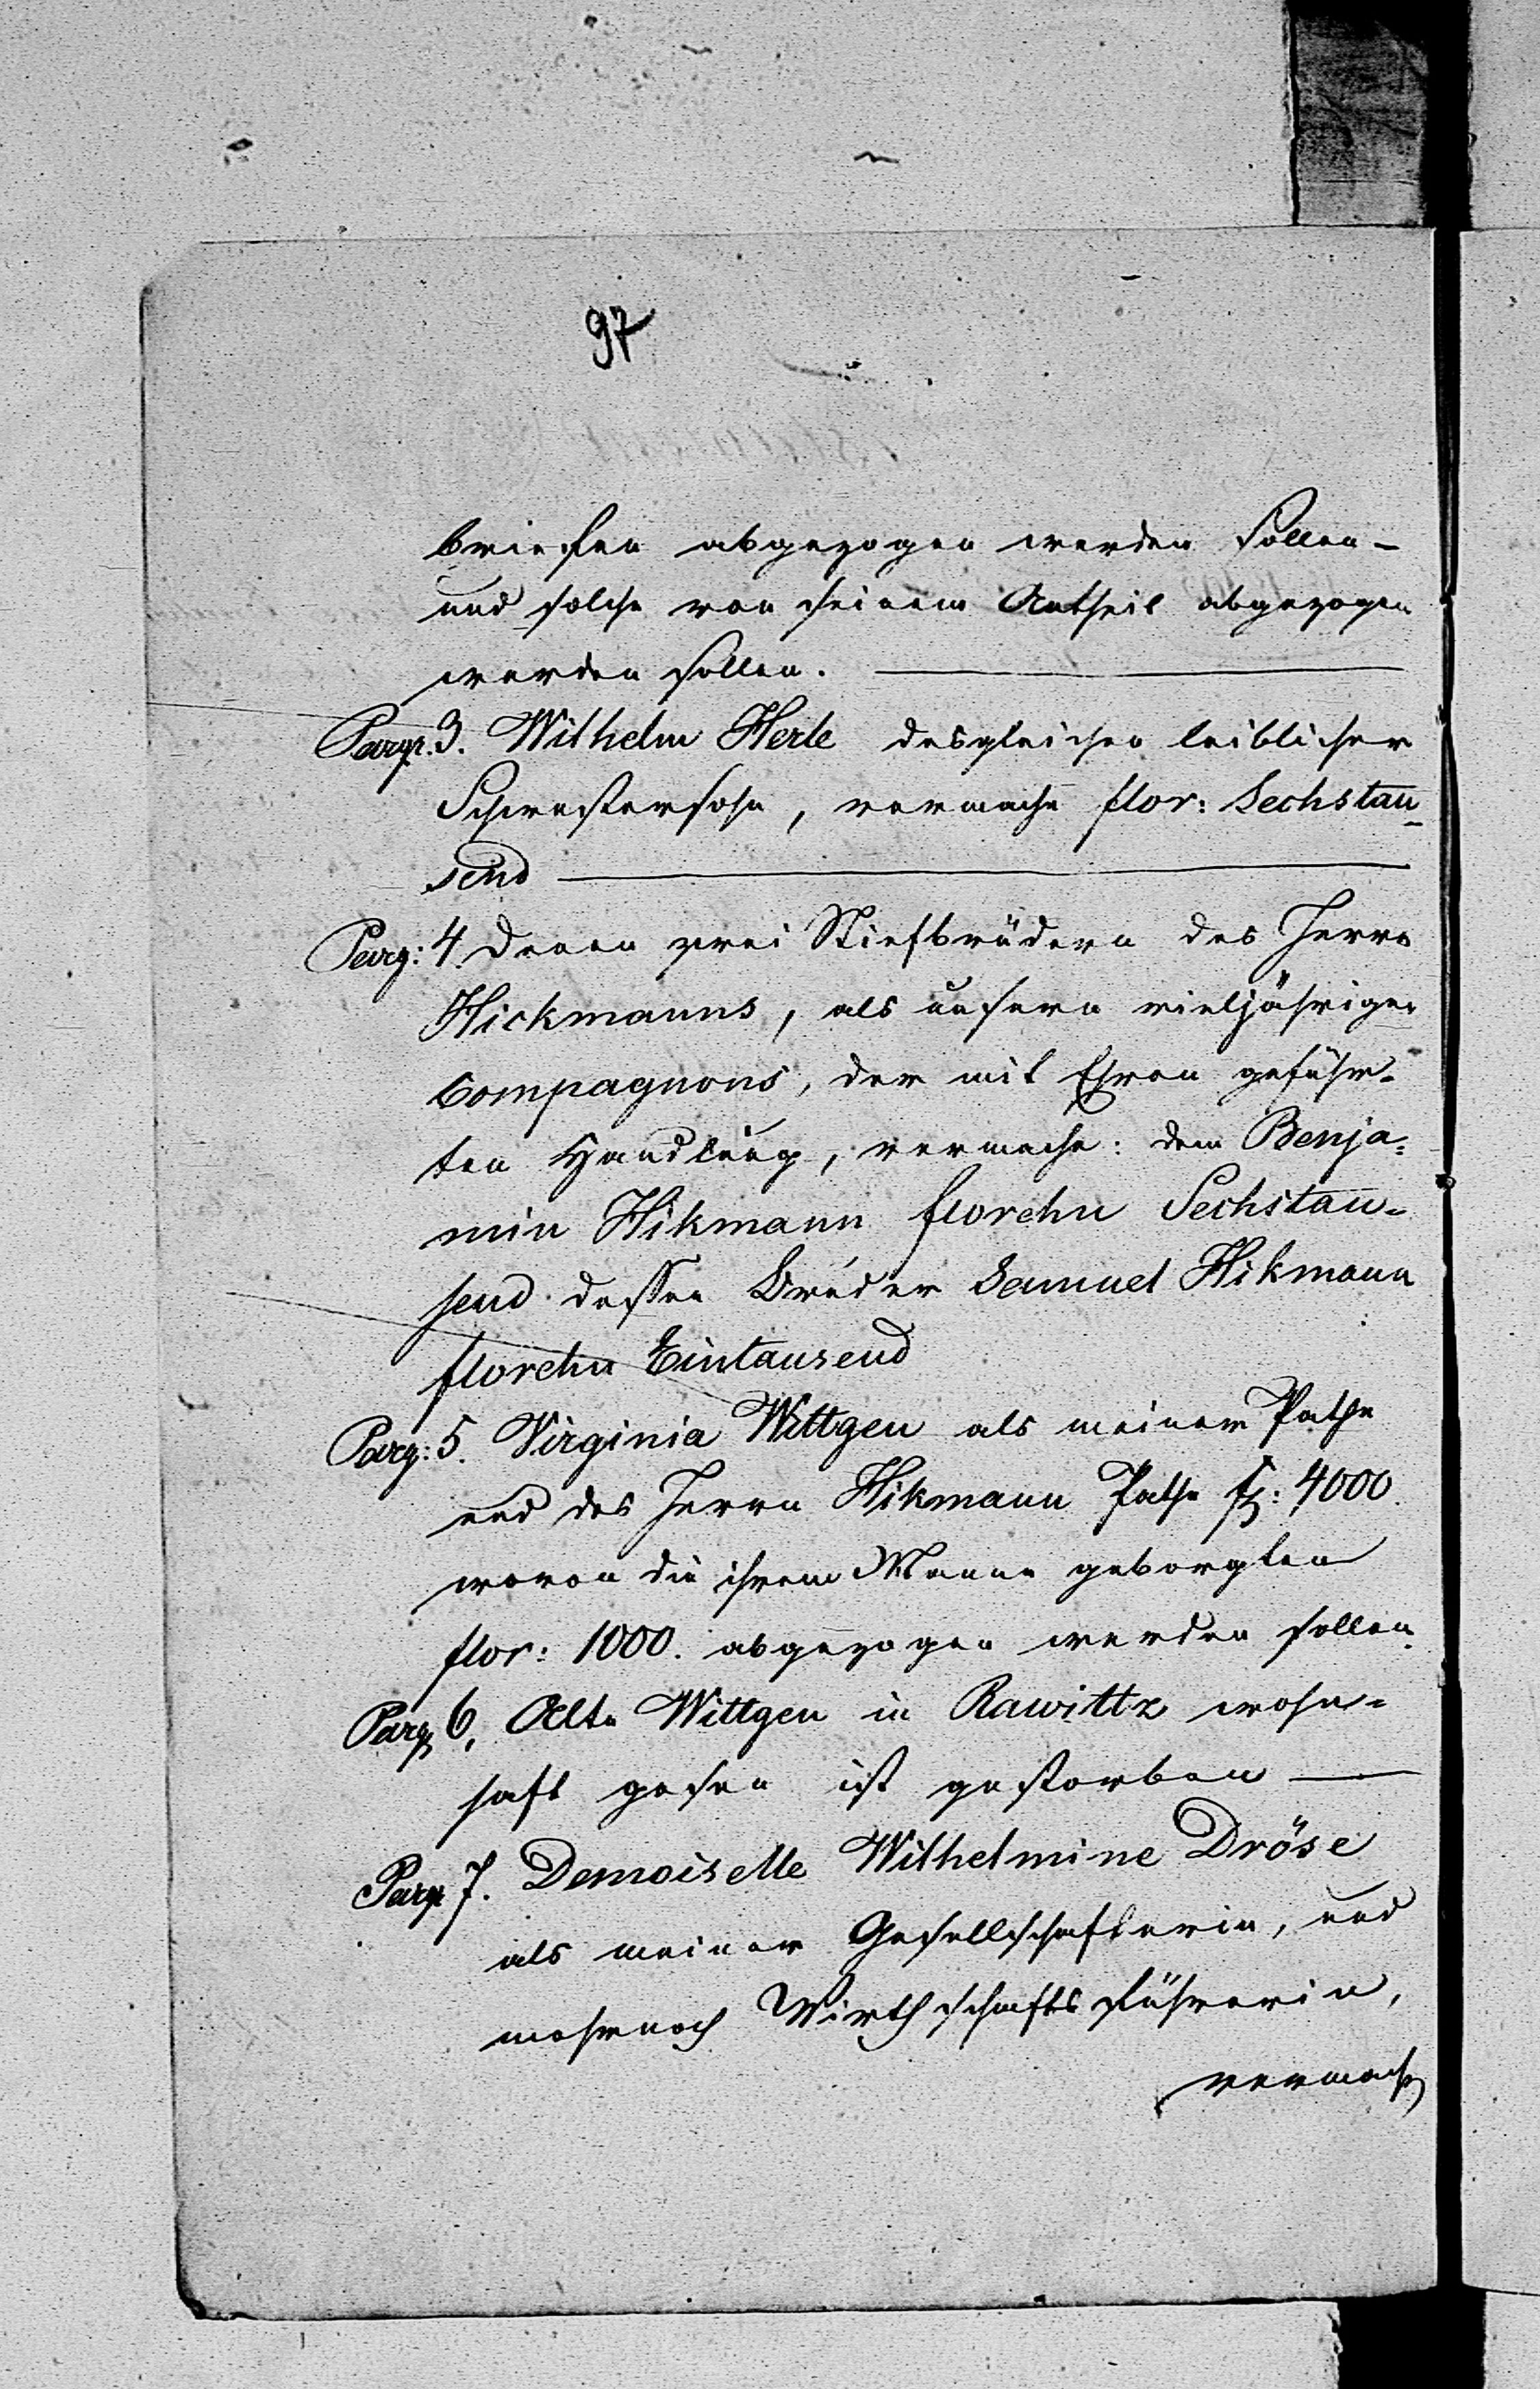 97
briefen abgezogen werden sollen -
und solche von seinem Antheil abgezogen
werden sollen. —
Pargr. 3. Wilhelm Herle desgleichen leiblicher
Schwestersohn, vermache flor: Sechstau-
send —
Parg: 4. Denen zwei Stiefbrüdern des Herrn
Hickmanns, als unsern vieljährigen
Compagnons, der mit Ehren geführ-
ten Handlung, vermache: dem Benja-
min Hikmann florehn Sechstau-
send. dessen Bruder Samuel Hikmann
florehn Eintausend
Parg: 5. Virginia Wittgen als meiner Pathe
und des Herrn Hikmann Pathe fl: 4000.
wovon die ihrem Manne geborgten
flor: 1000. abgezogen werden sollen.
Parg 6, Alte Wittgen in Rawittz wohn-
haft gesen ist gestorben —
Parg 7. Demoiselle Wilhelmine Dröse
als meiner Gesellschafterin, und
mehrnoch Wirthschafts führerin,
vermache